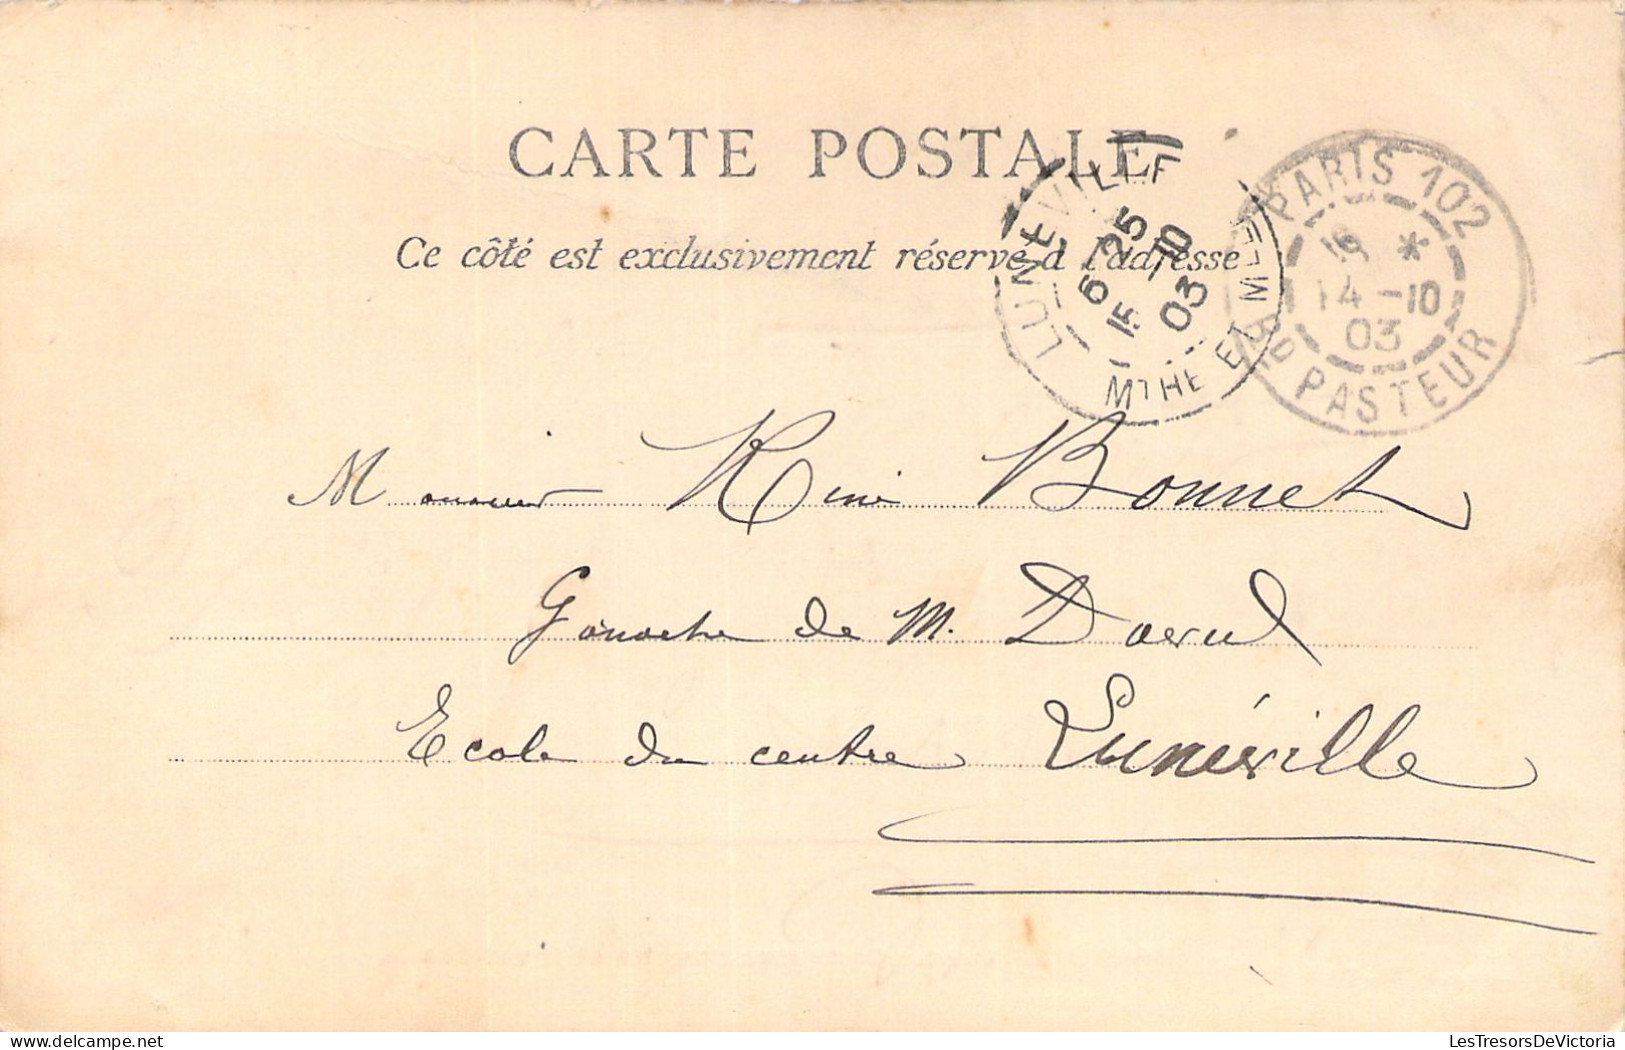 CARTE POSTALE
Ce côté est exclusivement réservé à l'adresse
LUNÉVILLE
6 25
15 -10
03
MTHE ET MLLE
PARIS 102
14 -10
03
BD PASTEUR
Monsieur René Bonnet
de M.
Ecole du centre Lunéville
LesTresorsDeVictoria